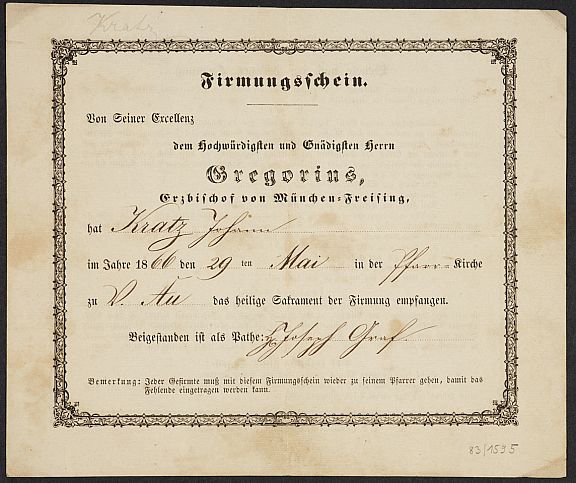 Kratz
Firmungsschein.
Von Seiner Excellenz
dem Hochwürdigsten und Gnädigsten Herrn
Gregorius,
Erzbischof von München-Freising,
hat Kratz Johann
im Jahre 1866 den 29ten Mai in der Pfarr-Kirche
zu V. Au das heilige Sakrament der Firmung empfangen.
Beigestanden ist als Pathe: H. Joseph Graf.
Bemerkung: Jeder Gefirmte muß mit diesem Firmungsschein wieder zu seinem Pfarrer gehen, damit das
Fehlende eingetragen werden kann.
83/1595